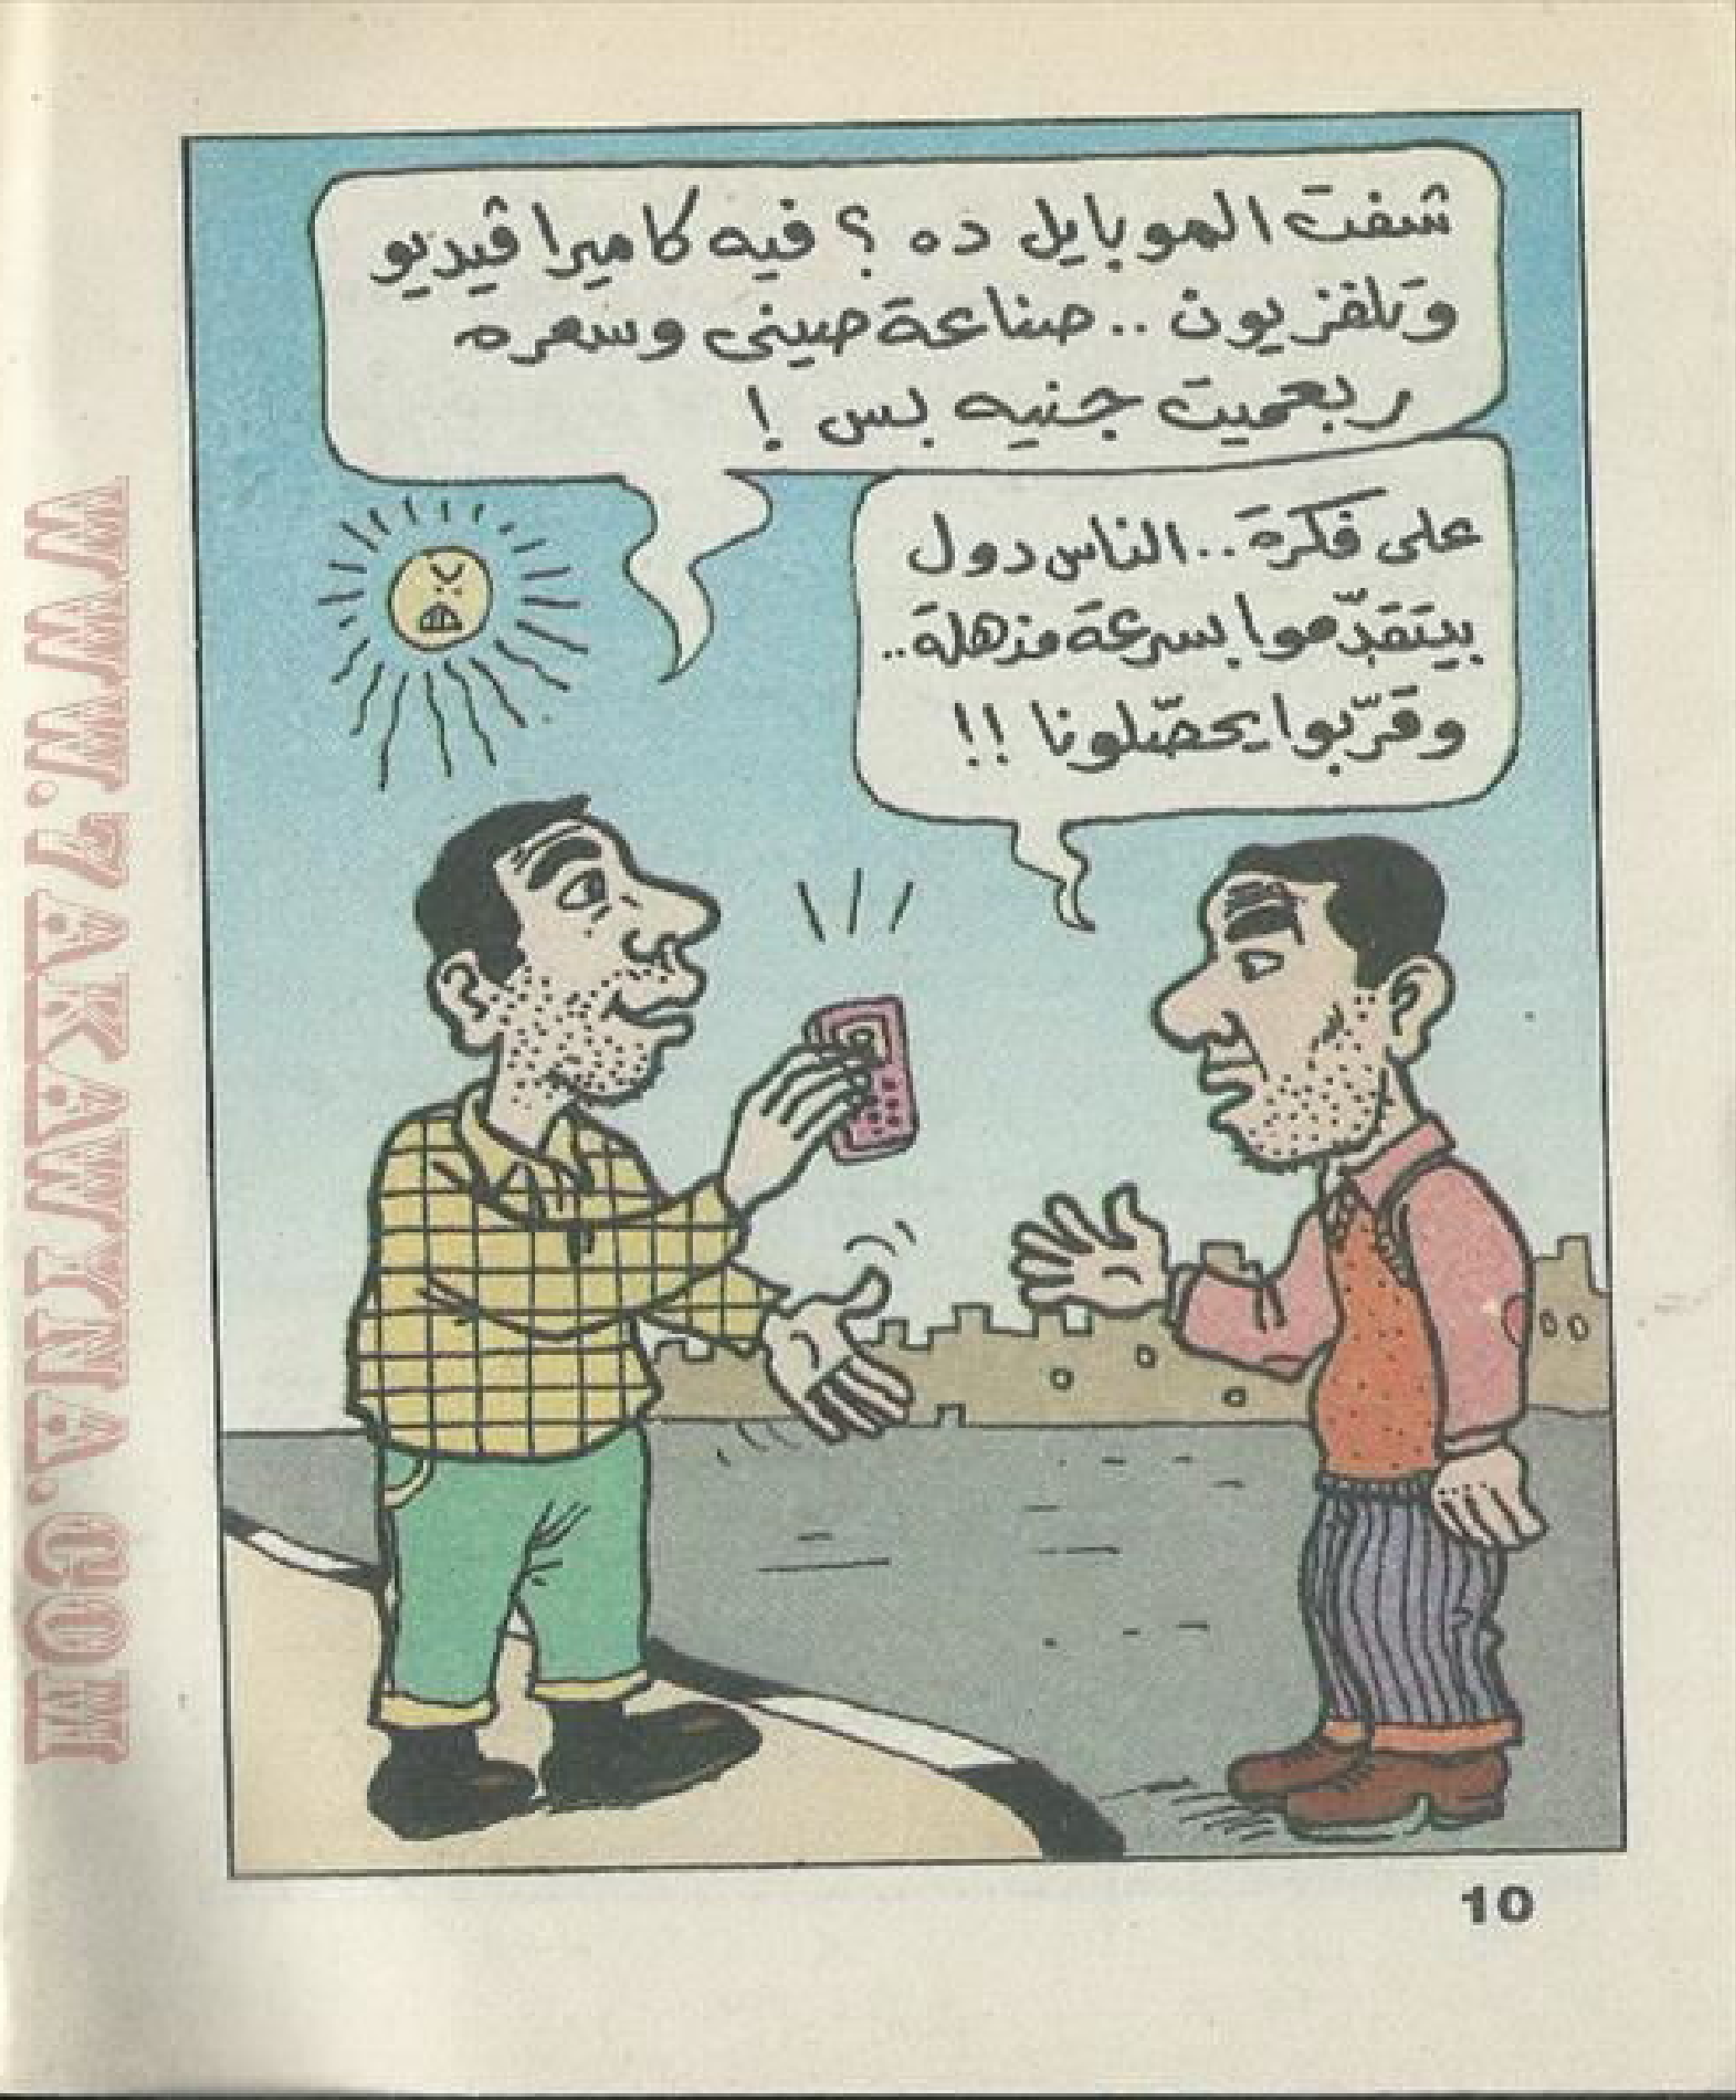 شفت الموبايل ده ؟ فيه كاميرا ڤيديو
وتلفزيون .. صناعة صينى وسعره
ربعميت جنيه بس !
على فكرة .. الناس دول
بيتقدّموا بسرعة مذهلة ..
وقرّبوا يحصّلونا !!
WWW.7AKAWINA.COM
10